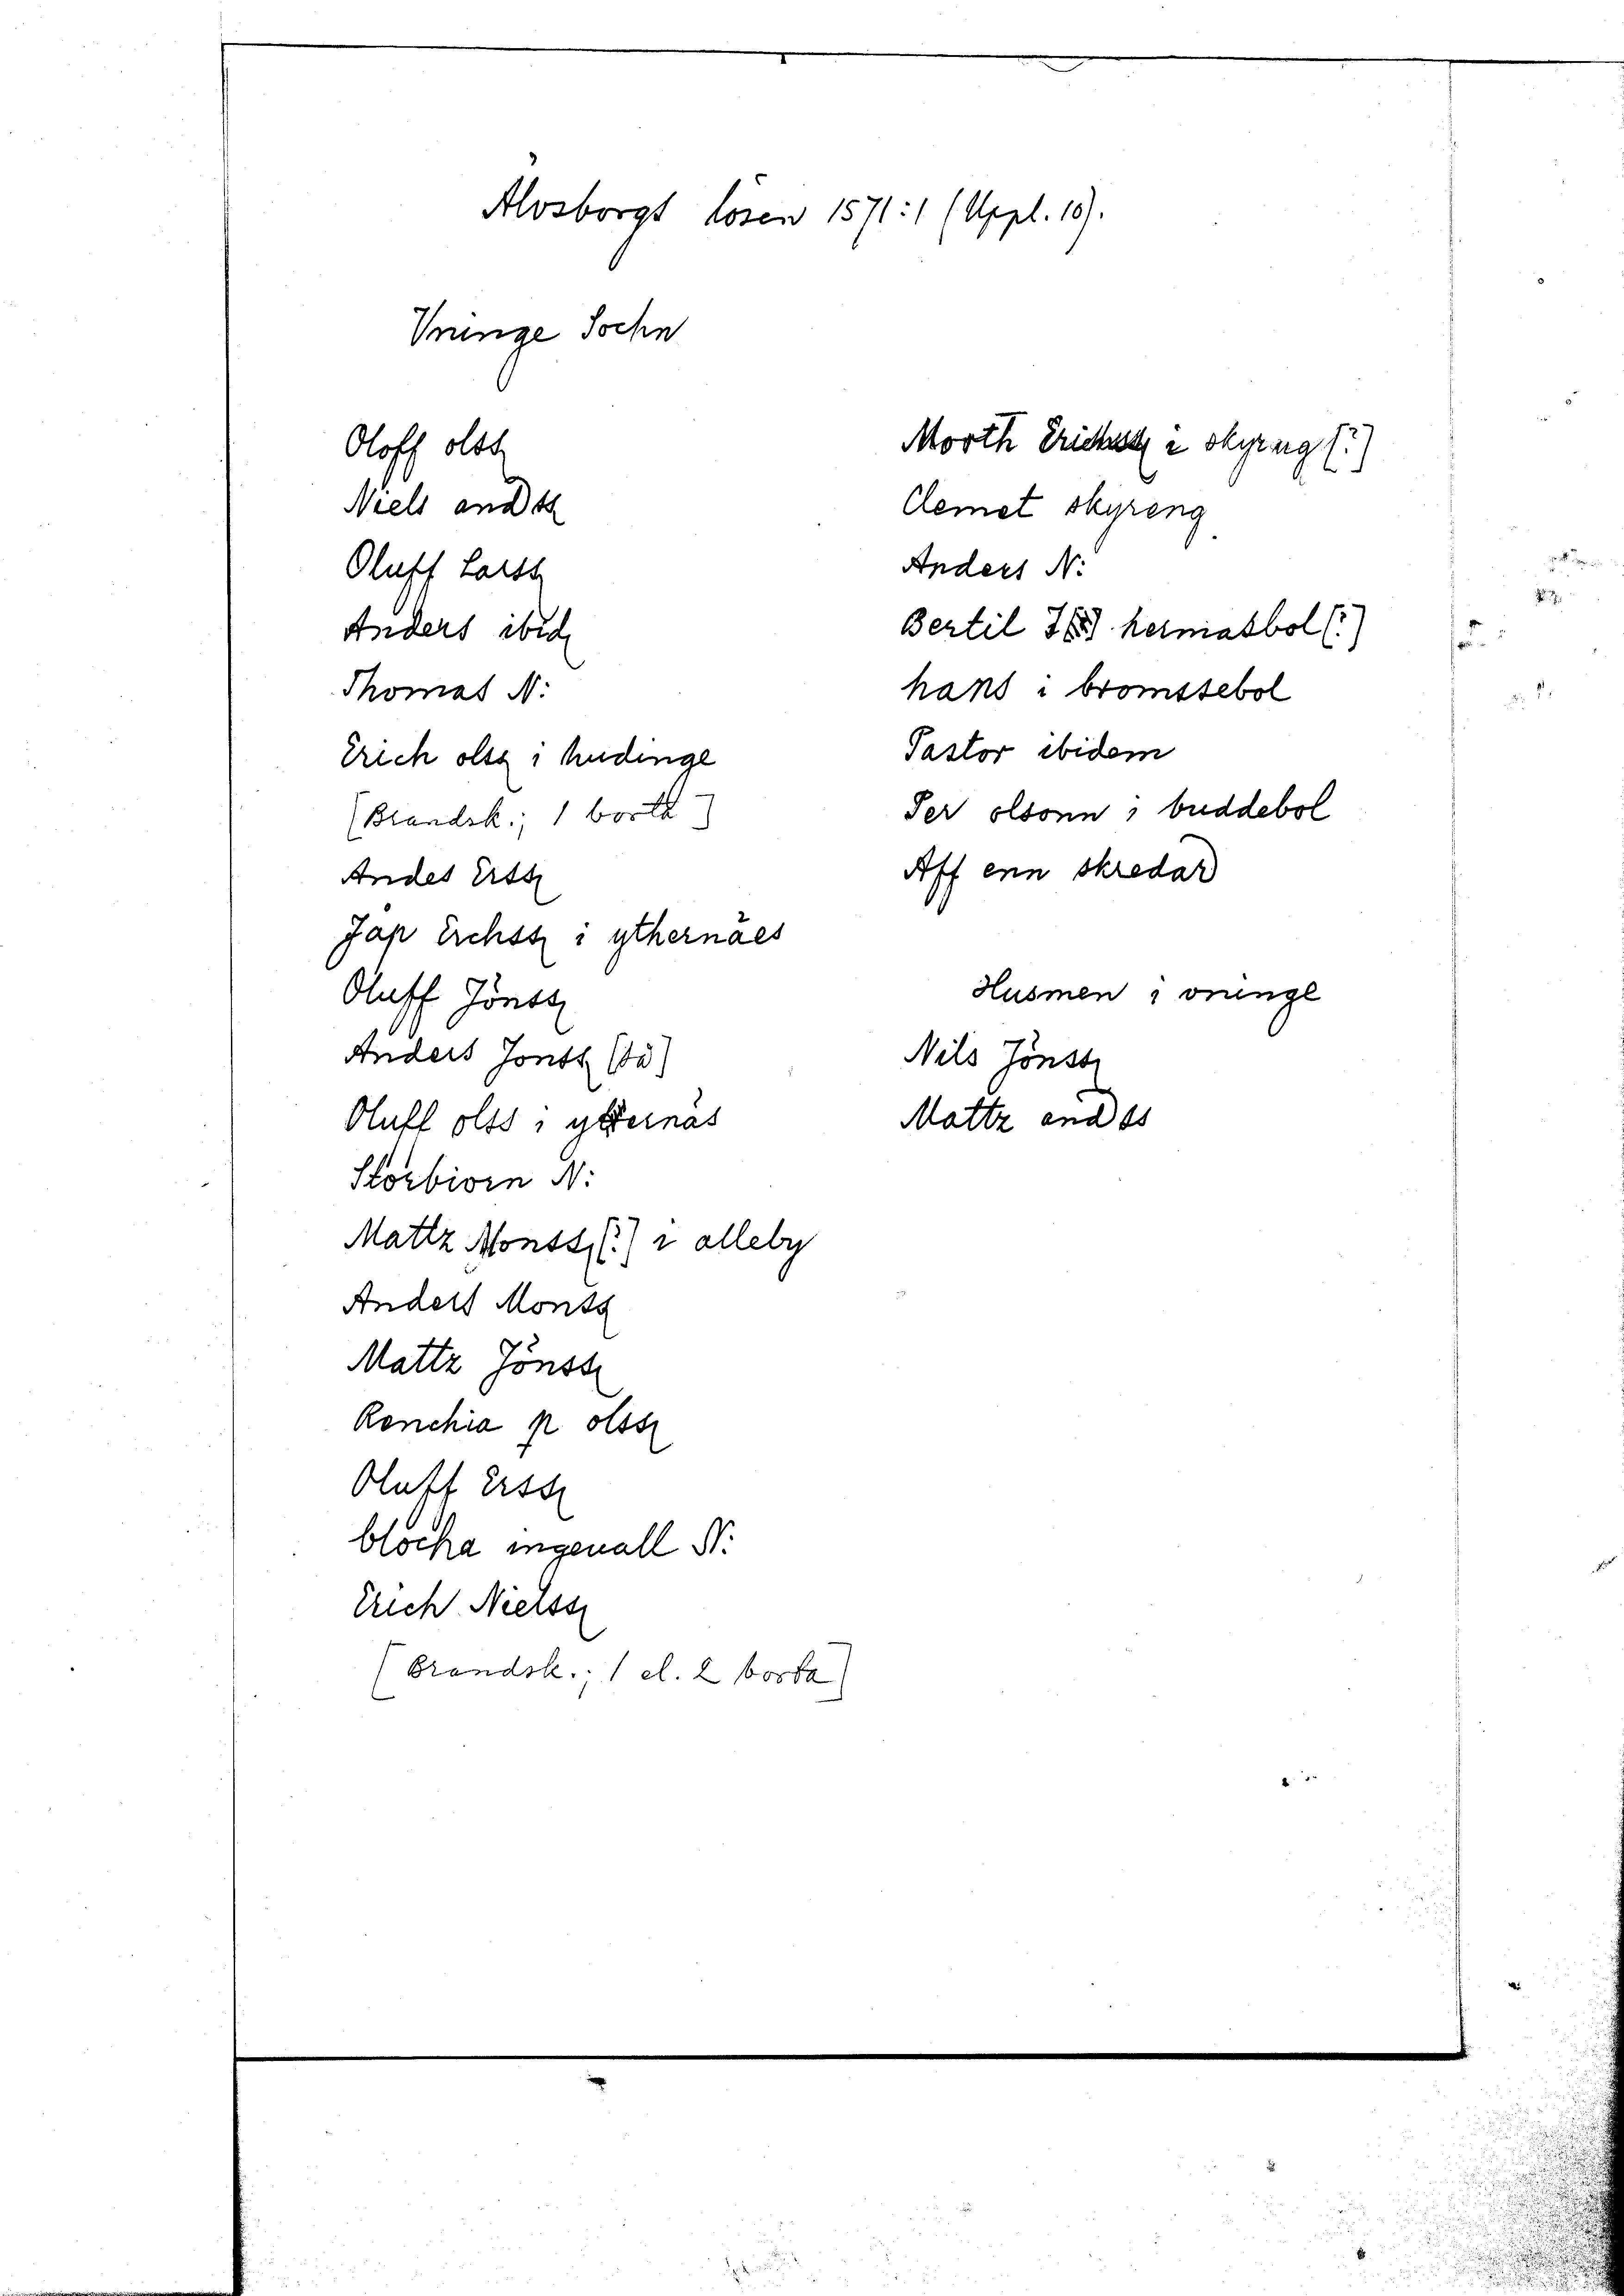 Älvsborgs lösen 1571:1 (Uppl. 10).
Vninge Sochn
Oloff olss
Niels andss
Oluff Larss
Anders ibid
Thomas N:
Erich olss i hudinge
[Brandsk.; 1 borta]
Andes Erss
Jäp Erchss i ythernäes
Oluff Jönss
Anders Jonss [så]
Oluff olss i ytternäs
Storbiorn N:
Mattz Monss [?] i alleby
Anders Monss
Mattz Jönss
Renchia p olss
Oluff Erss
blocka ingenall N:
Erich Nielss
[Brandsk.; 1 el. 2 borta]
Morth Erichss i skyreng [?]
Clemet skyreng
Anders N:
Bertil hermasbol [?]
hans i bromssebol
Pastor ibidem
Per olsonn i buddebol
Aff enn skredar
Husmen i vninge
Nils Jönss
Mattz andss